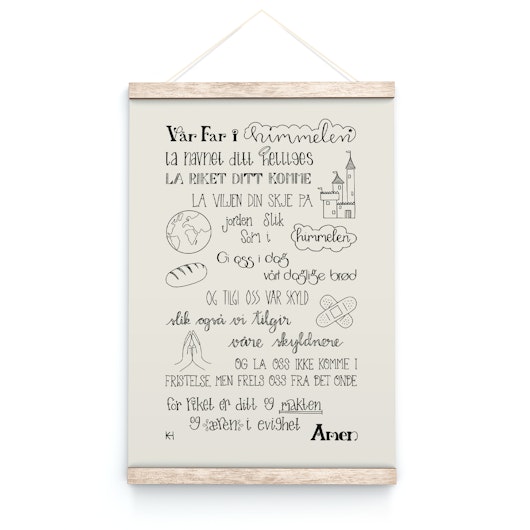 Vår Far i himmelen
La navnet ditt helliges
LA RIKET DITT KOMME
LA VILJEN DIN SKJE PÅ
jorden slik
Som i himmelen
Gi oss i dag
vårt daglige brød
OG TILGI OSS VÅR SKYLD
slik også vi tilgir
våre skyldnere
OG LA OSS IKKE KOMME I
FRISTELSE, MEN FRELS OSS FRA DET ONDE
for riket er ditt og makten
og æren i evighet
Amen
KH